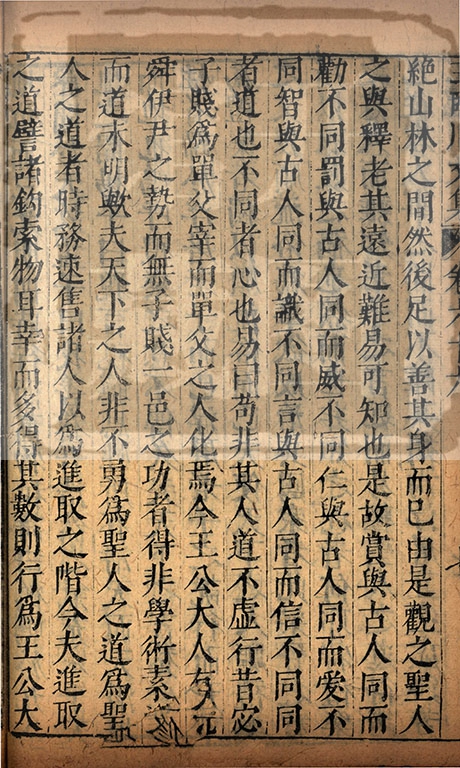 絕山林之間然後足以善其身而已由是觀之聖人
之與釋老其遠近難易可知也是故賞與古人同而
勸不同罰與古人同而威不同仁與古人同而愛不
同智與古人同而識不同言與古人同而信不同同
者道也不同者心也易曰苟非其人道不虛行昔宓
子賤爲單父宰而單父之人化焉今王公大人有堯
舜伊尹之勢而無子賤一邑之功者得非學術素
而道未明歟夫天下之人非不勇爲聖人之道爲聖
人之道者時務速售諸人以爲進取之階今夫進取
之道譬諸鈎索物耳幸而多得其數則行爲王公大